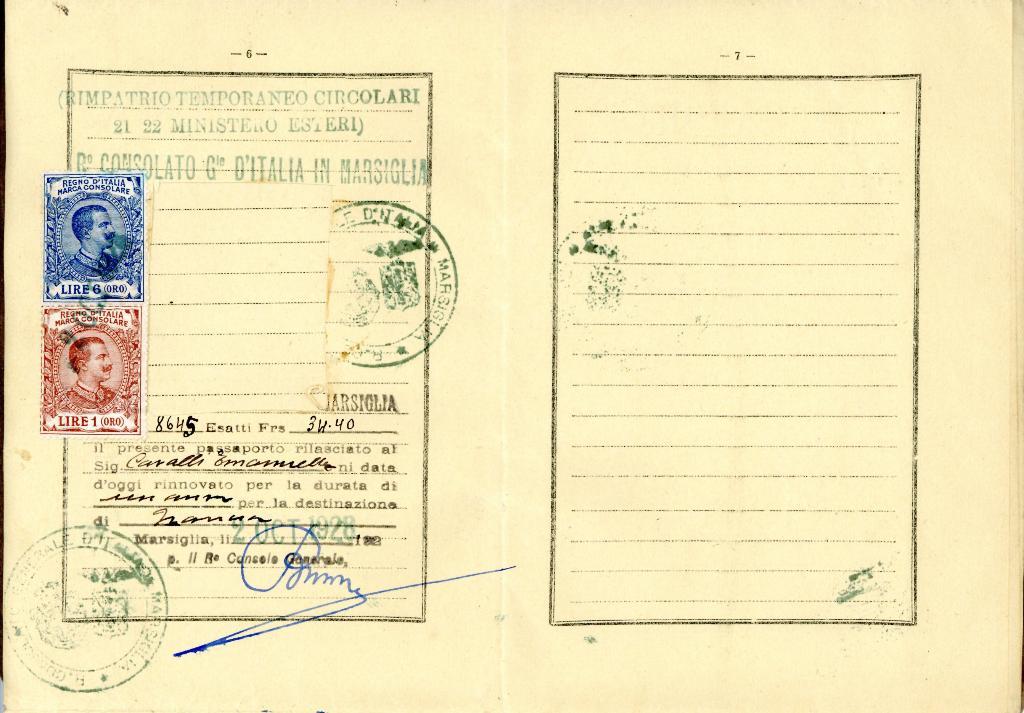 — 6 —
(RIMPATRIO TEMPORANEO CIRCOLARI
21 22 MINISTERO ESTERI)
Rº CONSOLATO Gle D'ITALIA IN MARSIGLIA
REGNO D'ITALIA
MARCA CONSOLARE
LIRE 6 (ORO)
REGNO D'ITALIA
MARCA CONSOLARE
LIRE 1 (ORO)
LE D'ITALIA ★ MARSIGLIA ★ R.
MARSIGLIA
8645 Esatti Frs 34.40
il presente passaporto rilasciato al
Sig. Cavalli Emanuelle ni data
d'oggi rinnovato per la durata di
un anno per la destinazione
di Francia
Marsiglia, li 2 OCT 1928 192
p. Il Rº Console Generale,
ALE D'ITALIA MARSIGLIA ★ R.
— 7 —